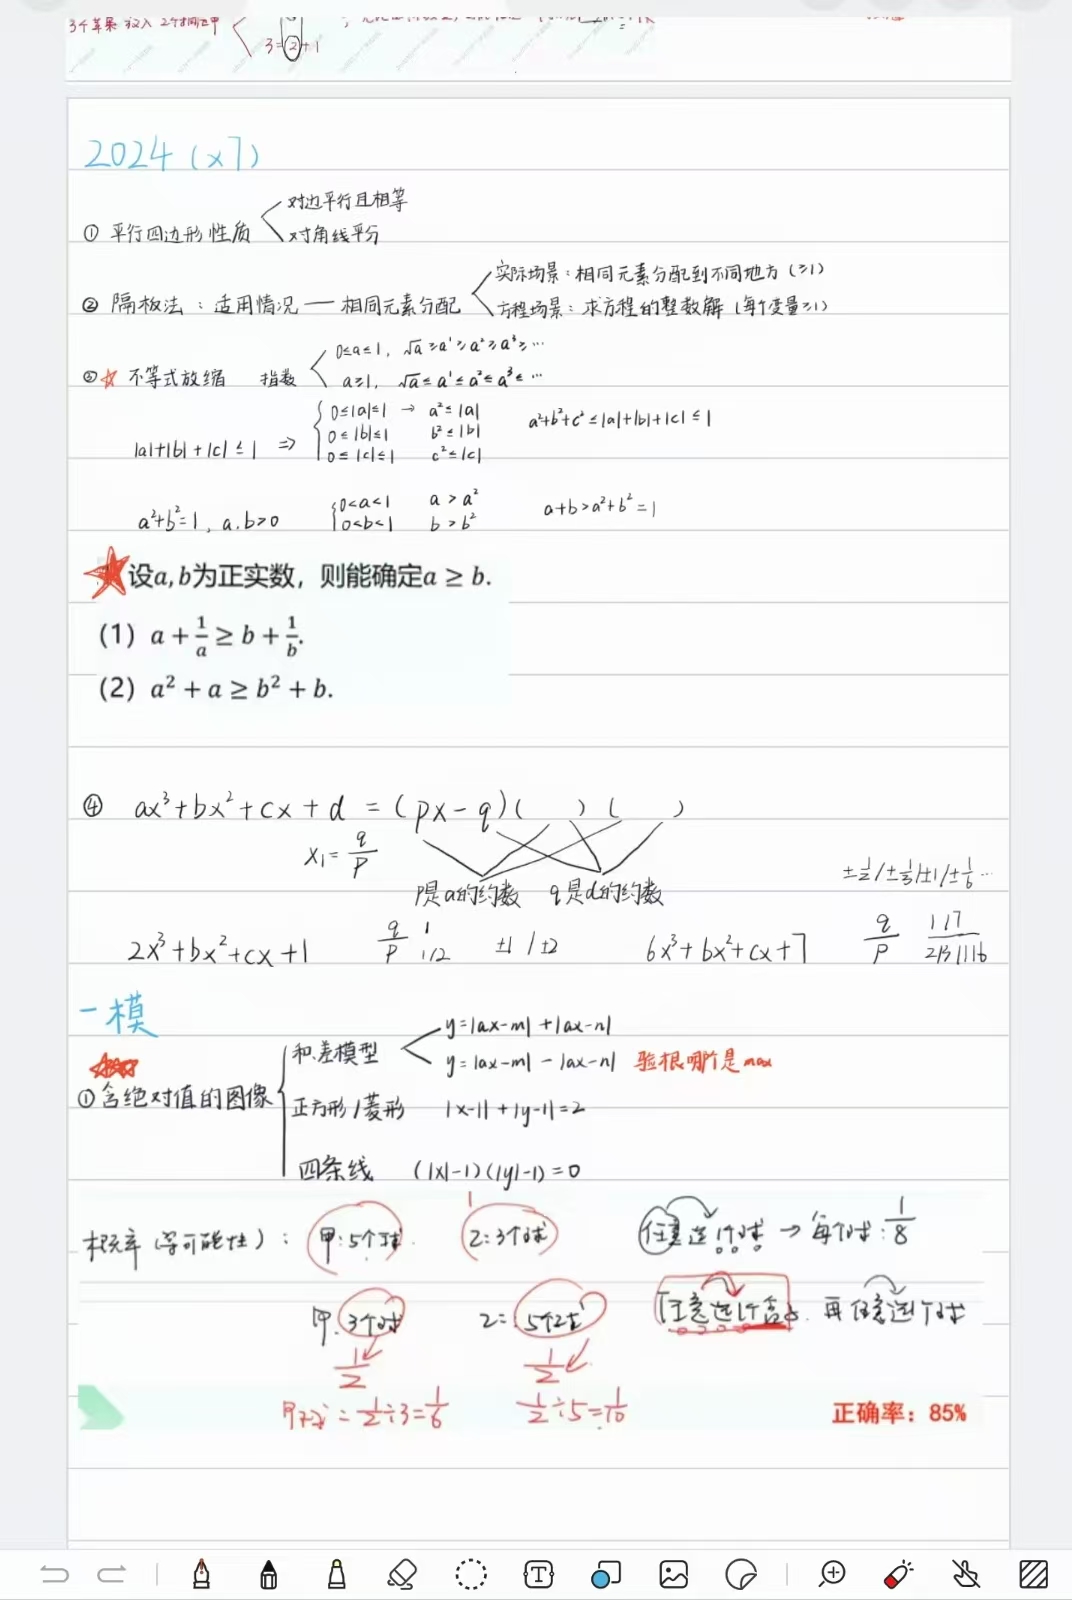 3个苹果 放入 2个抽屉中
3=2+1
2024 (x7)
① 平行四边形性质
对边平行且相等
对角线平分
② 隔板法：适用情况 — 相同元素分配
实际场景：相同元素分配到不同地方 (≥1)
方程场景：求方程的整数解 (每个变量≥1)
③ 不等式放缩 指数
0≤a≤1, √a ≥a¹≥a²≥a³≥…
a≥1, √a ≤ a¹ ≤ a² ≤ a³ ≤ …
|a|+|b|+|c| ≤ 1 ⇒
0≤|a|≤1 → a²≤|a|
0≤|b|≤1 b²≤|b|
0≤|c|≤1 c²≤|c|
a²+b²+c² ≤|a|+|b|+|c| ≤ 1
a²+b²=1, a,b>0
0<a<1 a > a²
0<b<1 b > b²
a+b>a²+b²=1
设a,b为正实数，则能确定a ≥ b.
（1）a + 1/a ≥ b + 1/b.
（2）a² + a ≥ b² + b.
④ ax³+bx²+cx+d = (px-q)( )( )
x₁= q/p
p是a的约数 q是d的约数
±1/2 / ±1/3 / ±1 / ±1/6 …
2x³+bx²+cx+1 q/p 1 1/2 ±1 / ±2
6x³+bx²+cx+7 q/p 1 1 7 2/3/1/6
一模
① 含绝对值的图像
和.差模型
y=|ax-m| +|ax-n|
y=|ax-m| - |ax-n| 验根哪个是max
正方形/菱形 |x-1| + |y-1|=2
四条线 (|x|-1)(|y|-1)=0
概率（等可能性）：甲:5个球. 乙:3个球 任意选1个球 → 每个球: 1/8
甲: 3个球 乙: 5个球 任意选1个盒子. 再任意选1个球
1/2 1/2
甲球: 1/2÷3=1/6 1/2÷5=1/10
正确率：85%